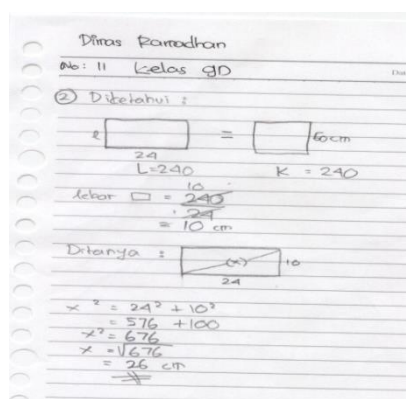 Dimas Ramadhan
No: 11 Kelas 9D
② Diketahui :
l = 60 cm
24
L=240 K = 240
10
lebar □ = 240
24
= 10 cm
Ditanya : (x) 10
24
x² = 24² + 10²
= 576 + 100
x² = 676
x = √676
= 26 cm